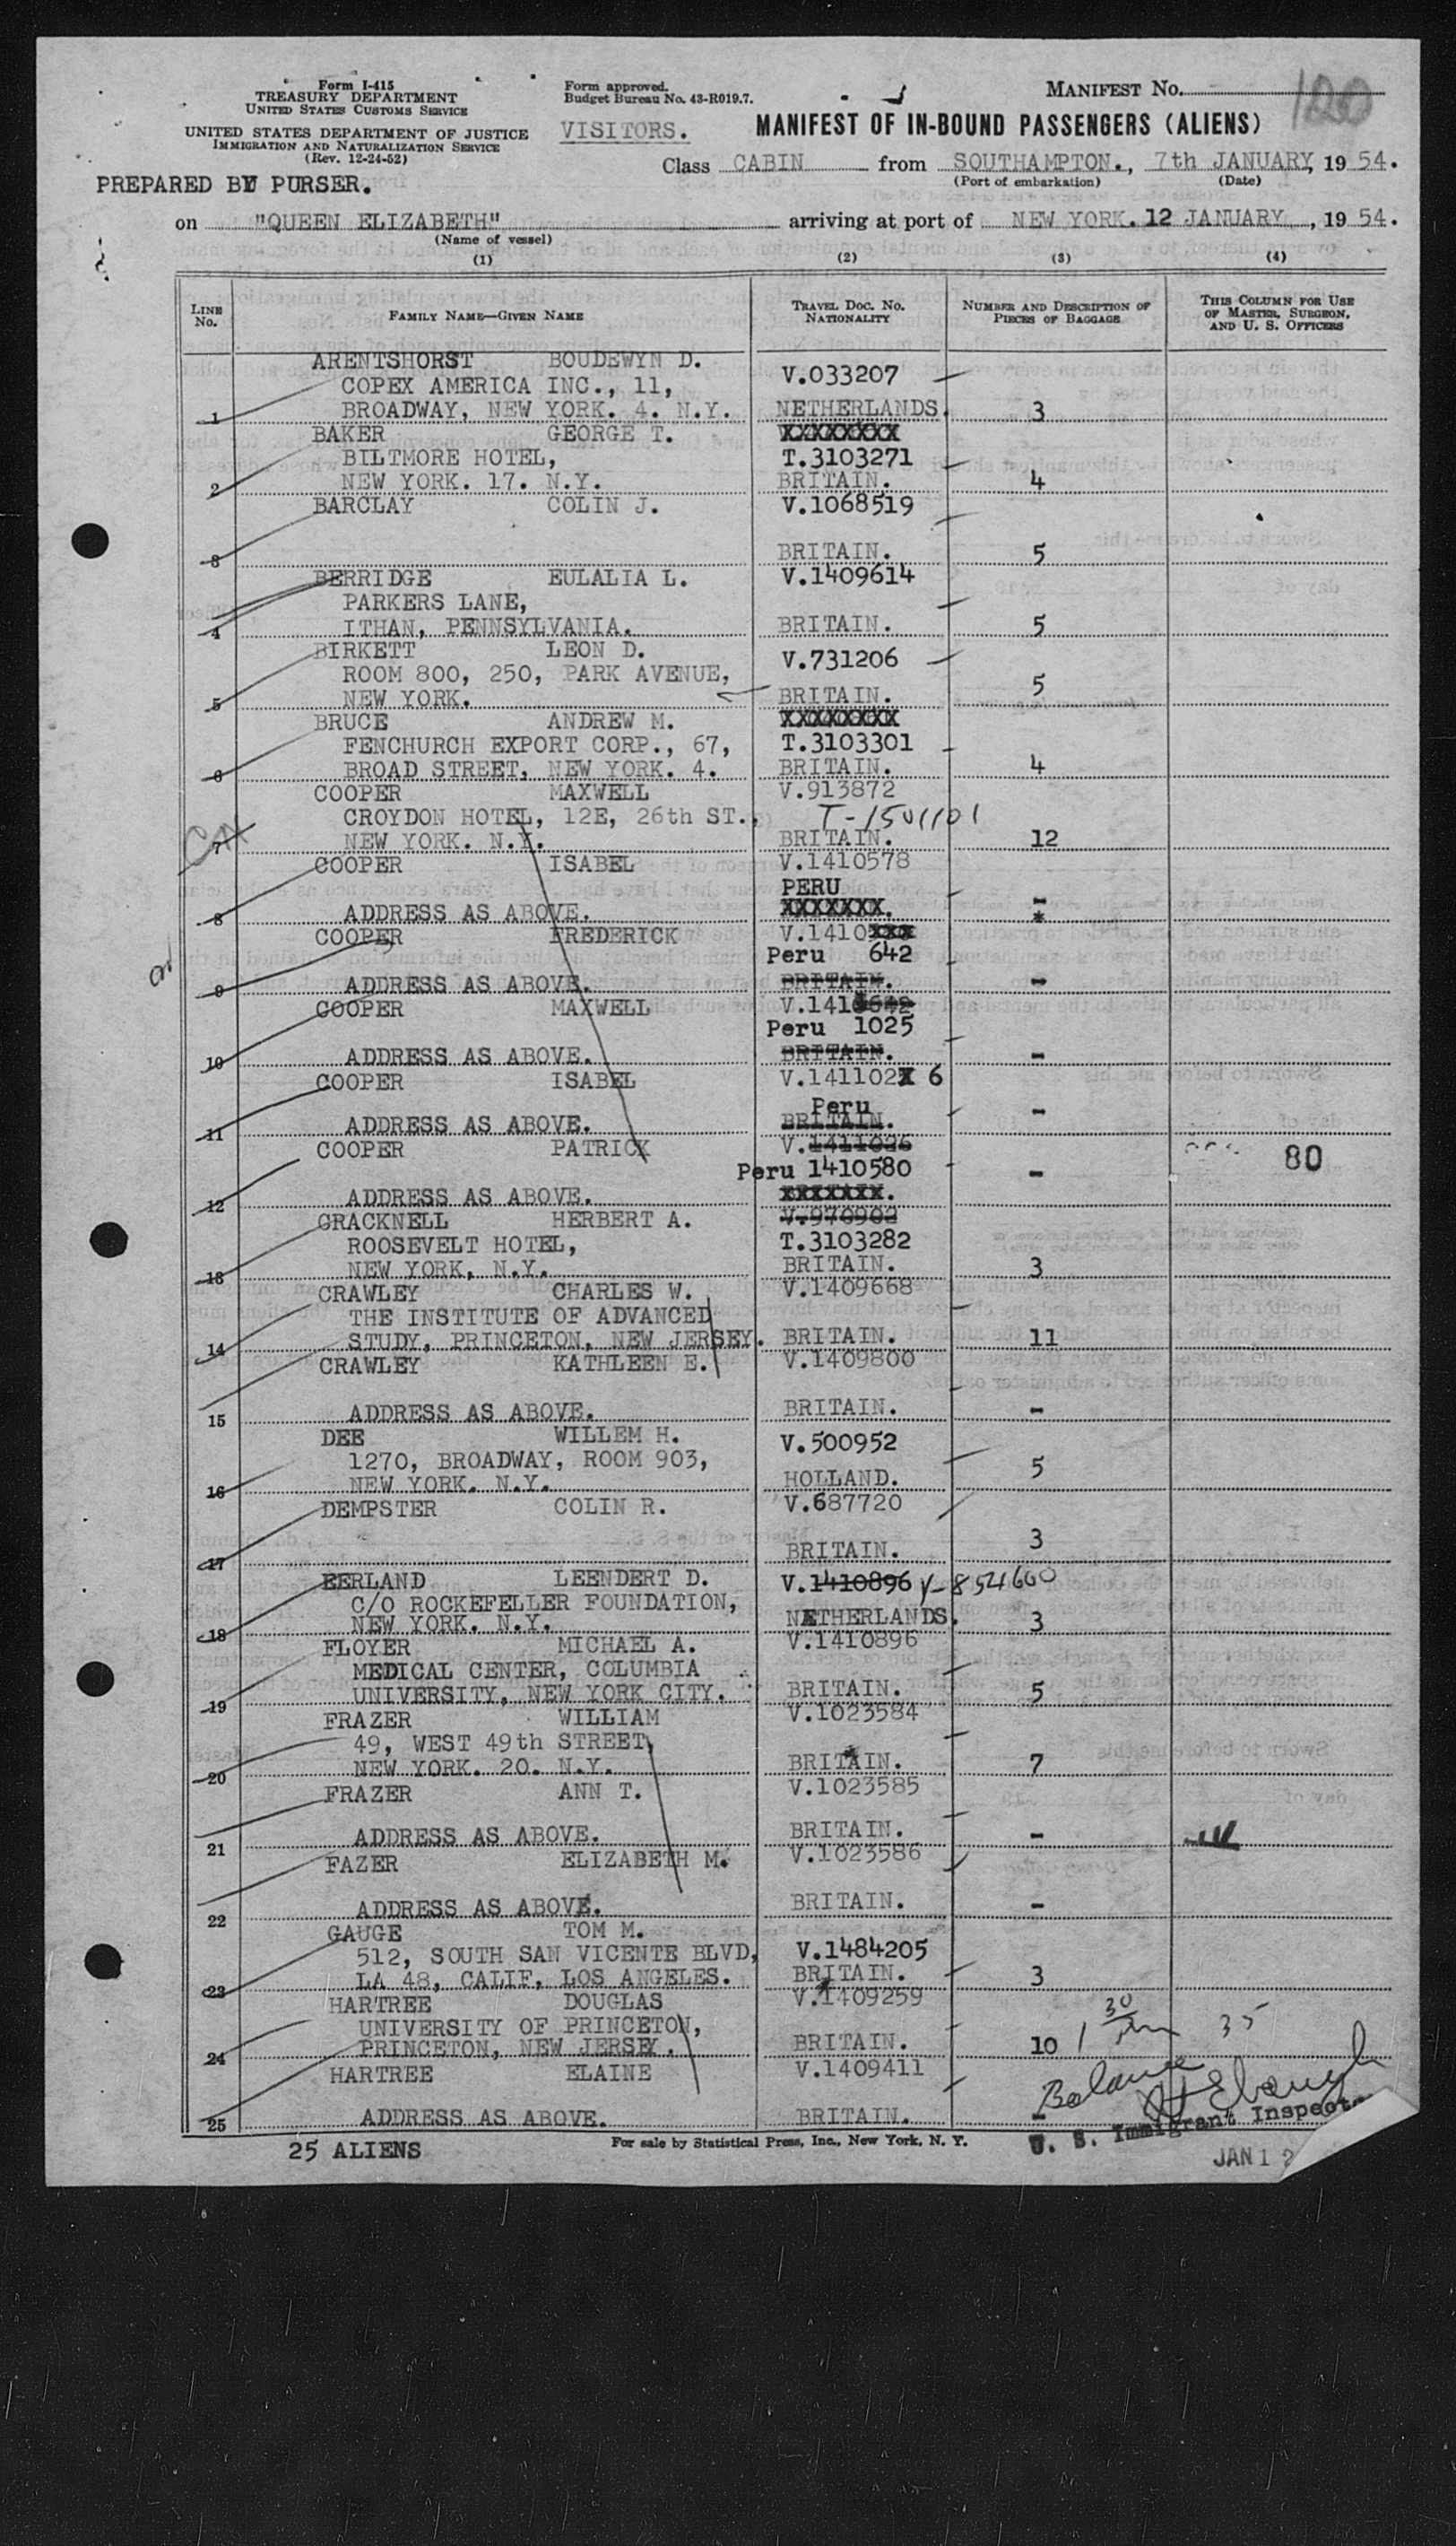 Form I-415
TREASURY DEPARTMENT
UNITED STATES CUSTOMS SERVICE
UNITED STATES DEPARTMENT OF JUSTICE
IMMIGRATION AND NATURALIZATION SERVICE
(Rev. 12-24-52)
PREPARED BY PURSER.
Form approved.
Budget Bureau No. 43-R019.7.
VISITORS.
MANIFEST No. 120
MANIFEST OF IN-BOUND PASSENGERS (ALIENS)
Class CABIN from SOUTHAMPTON., 7th JANUARY, 19 54.
(Port of embarkation) (Date)
on "QUEEN ELIZABETH" arriving at port of NEW YORK. 12 JANUARY, 19 54.
(Name of vessel)
(1) (2) (3) (4)
LINE No. FAMILY NAME—GIVEN NAME TRAVEL DOC. NO. NATIONALITY NUMBER AND DESCRIPTION OF PIECES OF BAGGAGE THIS COLUMN FOR USE OF MASTER, SURGEON, AND U. S. OFFICERS
ARENTSHORST BOUDEWYN D.
COPEX AMERICA INC., 11, V.033207
1 BROADWAY, NEW YORK. 4. N.Y. NETHERLANDS. 3
BAKER GEORGE T. XXXXXXXX
BILTMORE HOTEL, T.3103271
2 NEW YORK. 17. N.Y. BRITAIN. 4
BARCLAY COLIN J. V.1068519
3 BRITAIN. 5
BERRIDGE EULALIA L. V.1409614
PARKERS LANE,
4 ITHAN, PENNSYLVANIA. BRITAIN. 5
BIRKETT LEON D. V.731206
ROOM 800, 250, PARK AVENUE,
5 NEW YORK. BRITAIN. 5
BRUCE ANDREW M. XXXXXXXX
FENCHURCH EXPORT CORP., 67, T.3103301
6 BROAD STREET, NEW YORK. 4. BRITAIN. 4
COOPER MAXWELL V.913872
CROYDON HOTEL, 12E, 26th ST., T-1501101
7 NEW YORK. N.Y. BRITAIN. 12
COOPER ISABEL V.1410578
PERU
8 ADDRESS AS ABOVE. XXXXXXX. -
*
COOPER FREDERICK V.1410XXX
Peru 642
9 ADDRESS AS ABOVE. BRITAIN. -
COOPER MAXWELL V.1410642
Peru 1025
10 ADDRESS AS ABOVE. BRITAIN. -
COOPER ISABEL V.141102X 6
Peru
11 ADDRESS AS ABOVE. BRITAIN. -
COOPER PATRICK V.1411026
Peru 1410580 - 80
12 ADDRESS AS ABOVE. XXXXXXX.
CRACKNELL HERBERT A. V.970902
ROOSEVELT HOTEL, T.3103282
13 NEW YORK, N.Y. BRITAIN. 3
CRAWLEY CHARLES W. V.1409668
THE INSTITUTE OF ADVANCED
14 STUDY, PRINCETON, NEW JERSEY. BRITAIN. 11
CRAWLEY KATHLEEN E. V.1409800
15 ADDRESS AS ABOVE. BRITAIN. -
DEE WILLEM H. V.500952
1270, BROADWAY, ROOM 903,
16 NEW YORK. N.Y. HOLLAND. 5
DEMPSTER COLIN R. V.687720
17 BRITAIN. 3
EERLAND LEENDERT D. V.1410896 V-854660
C/O ROCKEFELLER FOUNDATION,
18 NEW YORK. N.Y. NETHERLANDS. 3
FLOYER MICHAEL A. V.1410896
MEDICAL CENTER, COLUMBIA
19 UNIVERSITY, NEW YORK CITY. BRITAIN. 5
FRAZER WILLIAM V.1023584
49, WEST 49th STREET,
20 NEW YORK. 20. N.Y. BRITAIN. 7
FRAZER ANN T. V.1023585
21 ADDRESS AS ABOVE. BRITAIN. -
FAZER ELIZABETH M. V.1023586
22 ADDRESS AS ABOVE. BRITAIN. -
GAUGE TOM M.
512, SOUTH SAN VICENTE BLVD, V.1484205
23 LA 48, CALIF, LOS ANGELES. BRITAIN. 3
HARTREE DOUGLAS V.1409259
UNIVERSITY OF PRINCETON, 30 35
24 PRINCETON, NEW JERSEY. BRITAIN. 10
HARTREE ELAINE V.1409411
Balance
25 ADDRESS AS ABOVE. BRITAIN. -
U. S. Immigrant Inspector
25 ALIENS
For sale by Statistical Press, Inc., New York, N. Y.
JAN 12